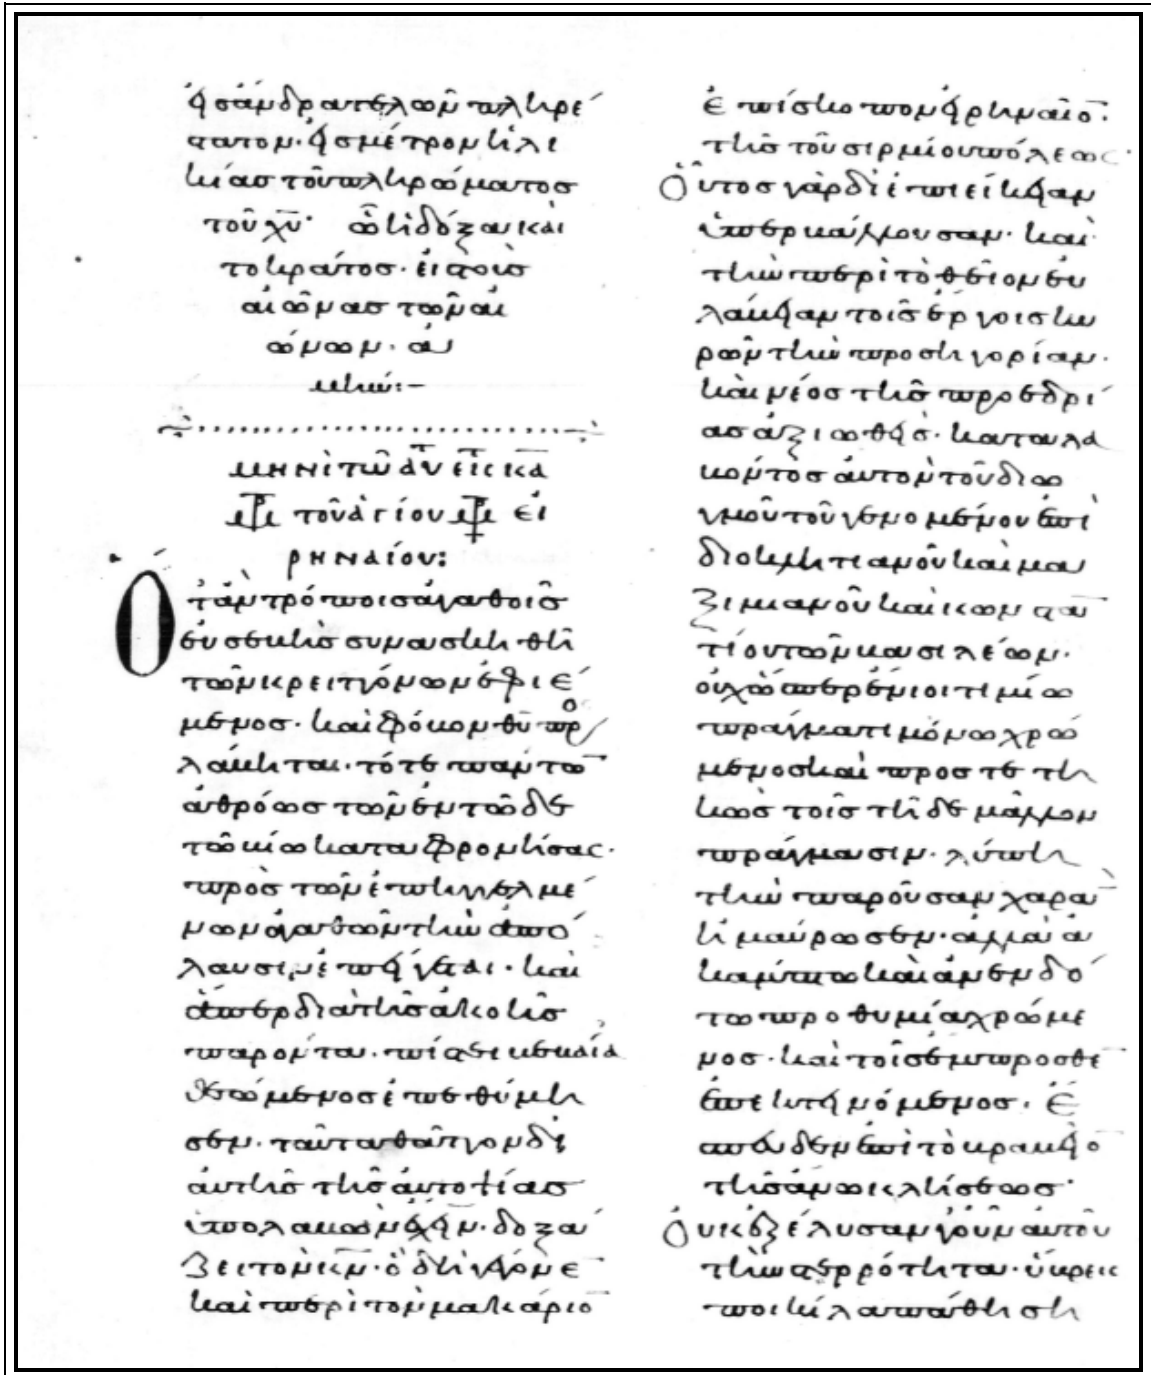 εἰσ ἄνδρα τελῶν πληρέ
στατον· εἰσ μέτρον ἡλι
κίασ τοῦ πληρώματοσ
τοῦ χυ· ὧ ἡ δόξα καὶ
το κράτοσ· εἰσ τοὺσ
αἰῶνασ τῶν αἰ
ώνων· ἀ
μήν:–
μηνὶ τῶ ἀυτ εἰσ κα
μρ τοῦ ἁγίου μρ εἰ
ρηναίου:
Ὅταν τρόποισ ἀγαθοῖσ
εὐσεβὴσ συνασκηθῆ
τῶν κρειττόνων ἐφιέ
μενοσ· καὶ φόβον θυ προσ
λάβηται· τότε πάντων
ἀθρόωσ τῶν ἐν τῶδε
τῶ βίω καταφρονήσασ·
πρὸσ τῶν ἐπηγγελμέ
νων ἀγαθῶν τὴν ἀπό
λαυσιν ἐπείγεται· καὶ
ἅπερ διὰ τῆσ ἀκοῆσ
παρόντα· πίστει βεβαία
θεώμενοσ ἐπεθύμη
σεν· ταῦτα θᾶττον δι
αὐτῆσ τῆσ αὐτοψίασ
ἀπολαβὼν ἔχειν· δοξά
ζει τὸν κν· ὃ δὴ γέγονε
καὶ περὶ τὸν μακάριον
ἐπίσκοπον εἰρηναῖον·
τῆσ τοῦ σιρμίου πόλεωσ·
Οὗτοσ γὰρ δι ἐπιείκειαν
ὑπερβάλλουσαν· καὶ
τὴν περὶ τὸ θεῖον εὐ
λάβειαν τοῖσ ἔργοισ κυ
ρῶν τὴν προσηγορίαν·
καὶ νέοσ τῆσ προεδρί
ασ ἀξιωθεὶσ· καταλα
βόντοσ αὐτὸν τοῦ διω
γμοῦ τοῦ γενομένου ἐπὶ
διοκλητιανοῦ καὶ μα
ξιμιανοῦ καὶ κωνσταν
τίου τῶν βασιλέων·
οὐχ ὥσπερ ἔνιοι τιμίω
πράγματι μόνω χρώ
μενοσ καὶ πρόσ τε τη
κὼσ τοῖσ τῆδε μᾶλλον
πράγμασιν· λύπη
τὴν παροῦσαν χαρὰν
ἠμαύρωσεν· ἀλλὰ ἀ
κάμπτω καὶ ἀνενδό
τω προθυμία χρώμε
νοσ· καὶ τοῖσ ἔμπροσθεν
ἐπεκτεινόμενοσ· Ἔ
σπευδεν ἐπὶ τὸ βραβεῖον
τῆσ ἄνω κλήσεωσ·
Οὐκ ἐξέλυσαν γοῦν αὐτοῦ
τὴν στερρότητα· ὕβρεισ
ποικίλα πάθη